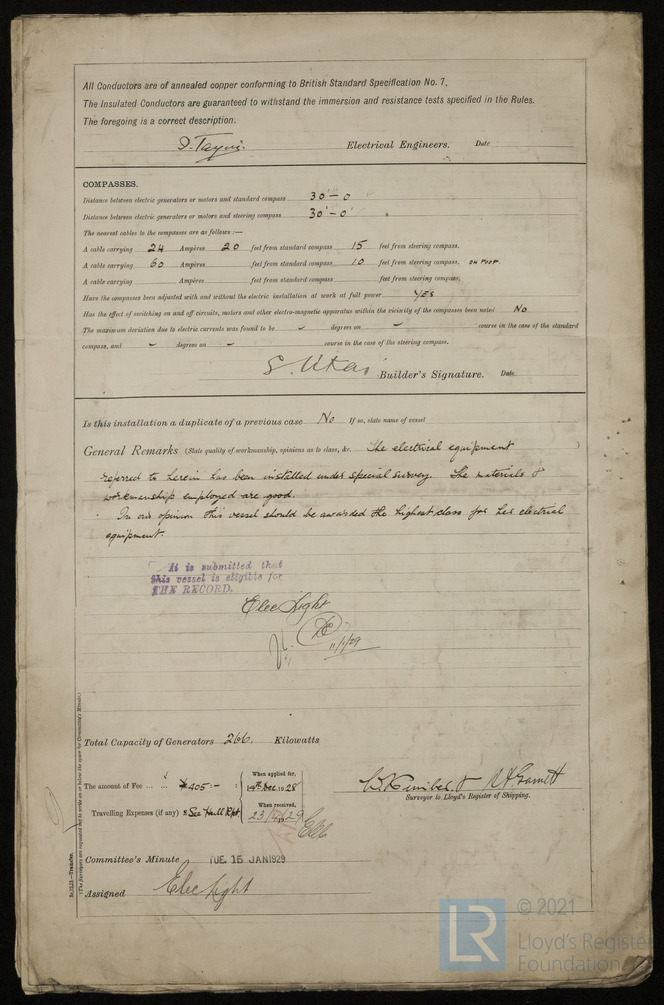 All Conductors are of annealed copper conforming to British Standard Specification No. 7.
The Insulated Conductors are guaranteed to withstand the immersion and resistance tests specified in the Rules.
The foregoing is a correct description.
Electrical Engineers. Date
COMPASSES.
Distance between electric generators or motors and standard compass 30'-0
Distance between electric generators or motors and steering compass 30'-0"
The nearest cables to the compasses are as follows :—
A cable carrying 24 Ampères 20 feet from standard compass 15 feet from steering compass.
A cable carrying 60 Ampères feet from standard compass 10 feet from steering compass. ON POOP.
A cable carrying Ampères feet from standard compass feet from steering compass.
Have the compasses been adjusted with and without the electric installation at work at full power YES
Has the effect of switching on and off circuits, motors and other electro-magnetic apparatus within the vicinity of the compasses been noted No
The maximum deviation due to electric currents was found to be - degrees on - course in the case of the standard
compass, and - degrees on - course in the case of the steering compass.
Builder's Signature. Date
Is this installation a duplicate of a previous case No If so, state name of vessel
General Remarks (State quality of workmanship, opinions as to class, &c. The electrical equipment )
referred to herein has been installed under special survey. The materials &
workmanship employed are good.
In our opinion this vessel should be awarded the highest class for her electrical
equipment.
It is submitted that
this vessel is eligible for
THE RECORD.
Elec Light
11/1/29
Total Capacity of Generators 266. Kilowatts
The amount of Fee ... ... ¥405:- When applied for, 14th Dec. 1928
Travelling Expenses (if any) See Hull Rpt When received, 23/1/1929
Surveyor to Lloyd's Register of Shipping.
Committee's Minute TUE. 15 JAN 1929
Assigned Elec Light
(The Surveyors are requested not to write on or below the space for Committee's Minute.)
© 2021
LR
Lloyd's Register
Foundation